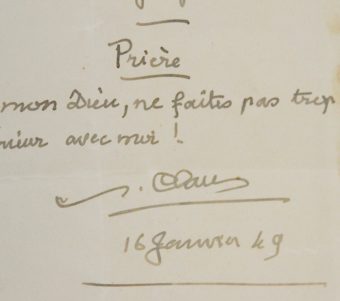 Prière
mon Dieu, ne faites pas trop
avec moi !
16 Janvier 49